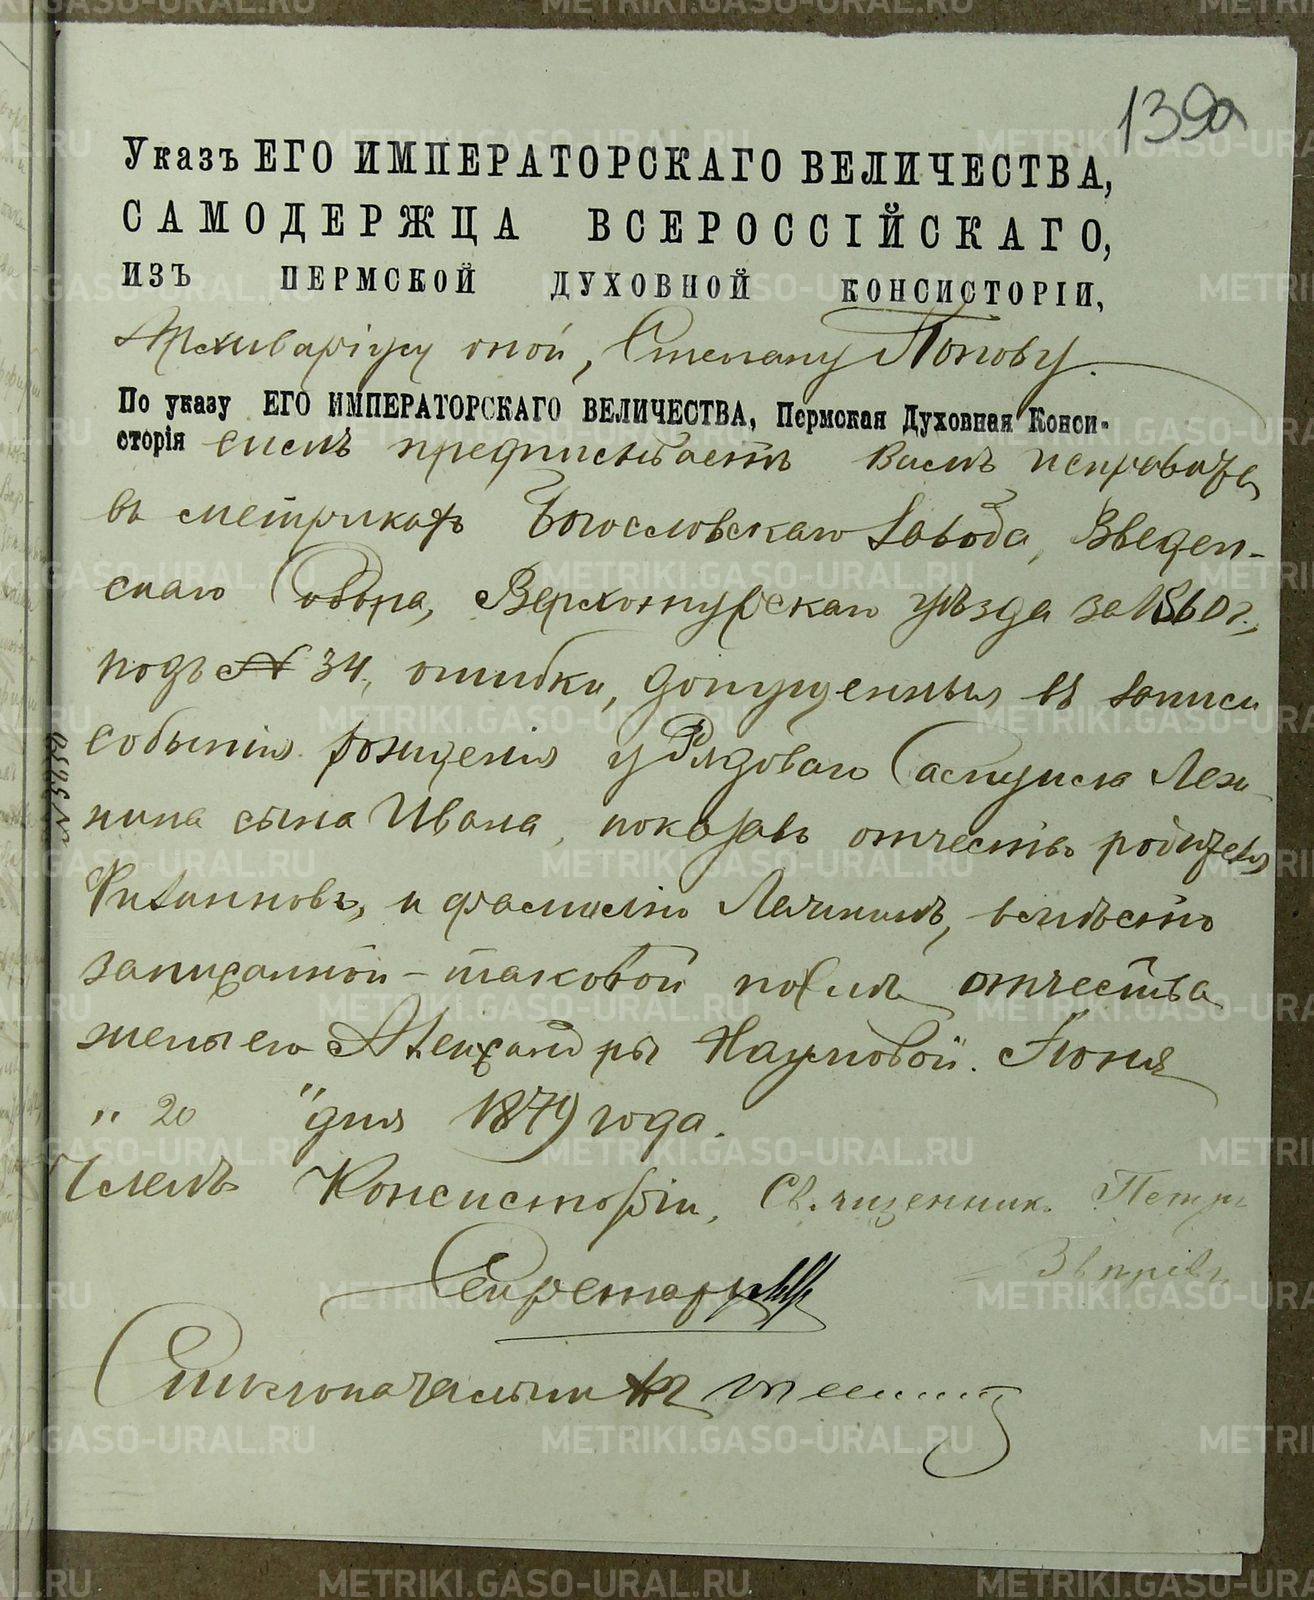 139а
Указъ ЕГО ИМПЕРАТОРСКАГО ВЕЛИЧЕСТВА,
САМОДЕРЖЦА ВСЕРОССІЙСКАГО,
ИЗЪ ПЕРМСКОЙ ДУХОВНОЙ КОНСИСТОРІИ,
Архиваріусу оной, Степану Попову.
По указу ЕГО ИМПЕРАТОРСКАГО ВЕЛИЧЕСТВА, Пермская Духовная Конси-
сторія симъ предписываетъ Вамъ исправить
въ метрикахъ Богословскаго завода, Введен-
скаго Собора, Верхотурскаго уѣзда за 1860 г.,
подъ № 34, ошибки, допущенныя въ записи
событія рожденія у Рядоваго
сына Ивана, показавъ отчество родителя
и фамилію вмѣсто
записанной – таковой послѣ отчества
жены его Александры Наумовой. Іюня
„ 20 " дня 1879 года.
Членъ Консисторіи, Священникъ Петръ
Секретарь
Столоначальникъ
METRIKI.GASO-URAL.RU